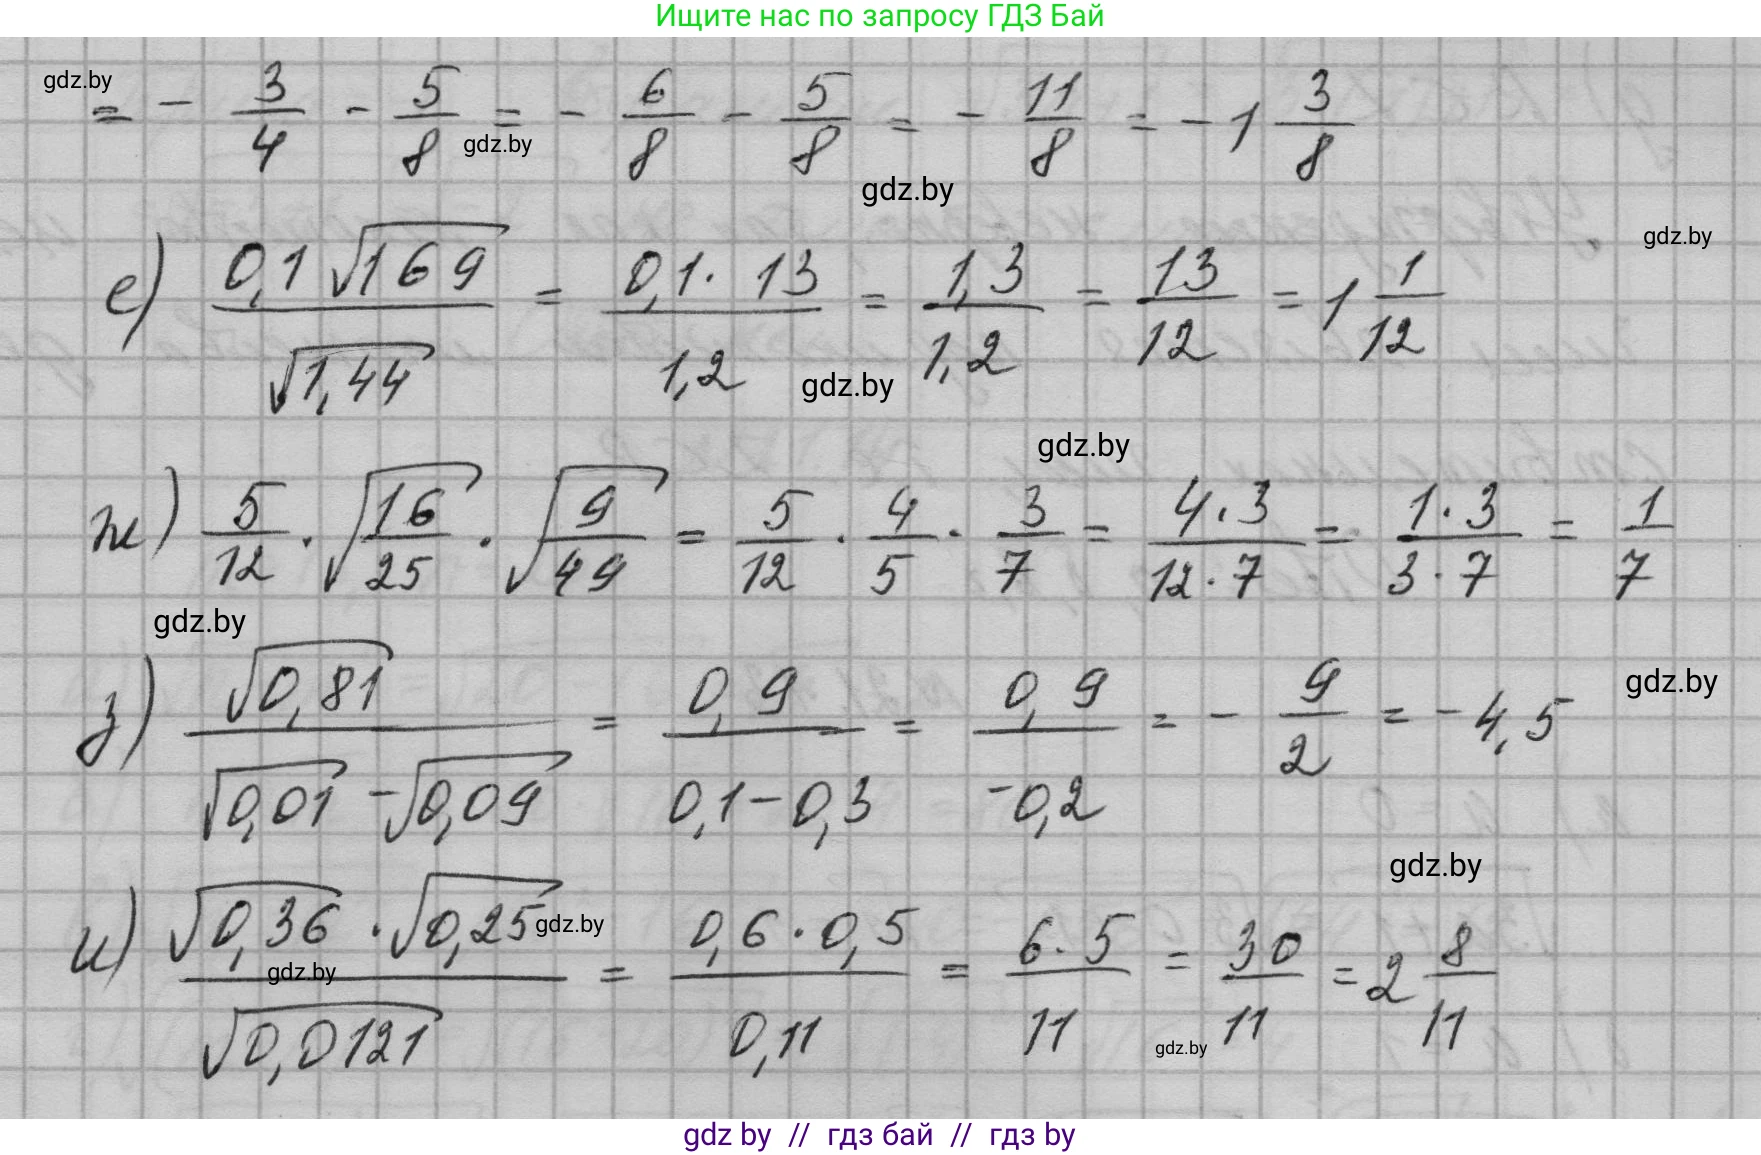 Ищите нас по запросу ГДЗ Бай
gdz.by
= - 3/4 - 5/8 = - 6/8 - 5/8 = - 11/8 = -1 3/8
gdz.by
gdz.by
gdz.by
е) 0,1 √169 / √1,44 = 0,1 · 13 / 1,2 = 1,3 / 1,2 = 13/12 = 1 1/12
gdz.by
gdz.by
ж) 5/12 · √16/25 · √9/49 = 5/12 · 4/5 · 3/7 = 4·3 / 12·7 = 1·3 / 3·7 = 1/7
gdz.by
gdz.by
з) √0,81 / √0,01 - √0,09 = 0,9 / 0,1-0,3 = 0,9 / -0,2 = - 9/2 = -4,5
gdz.by
и) √0,36 · √0,25 / √0,0121 = 0,6 · 0,5 / 0,11 = 6·5 / 11 = 30/11 = 2 8/11
gdz.by
gdz.by
gdz.by
gdz by // гдз бай // гдз by